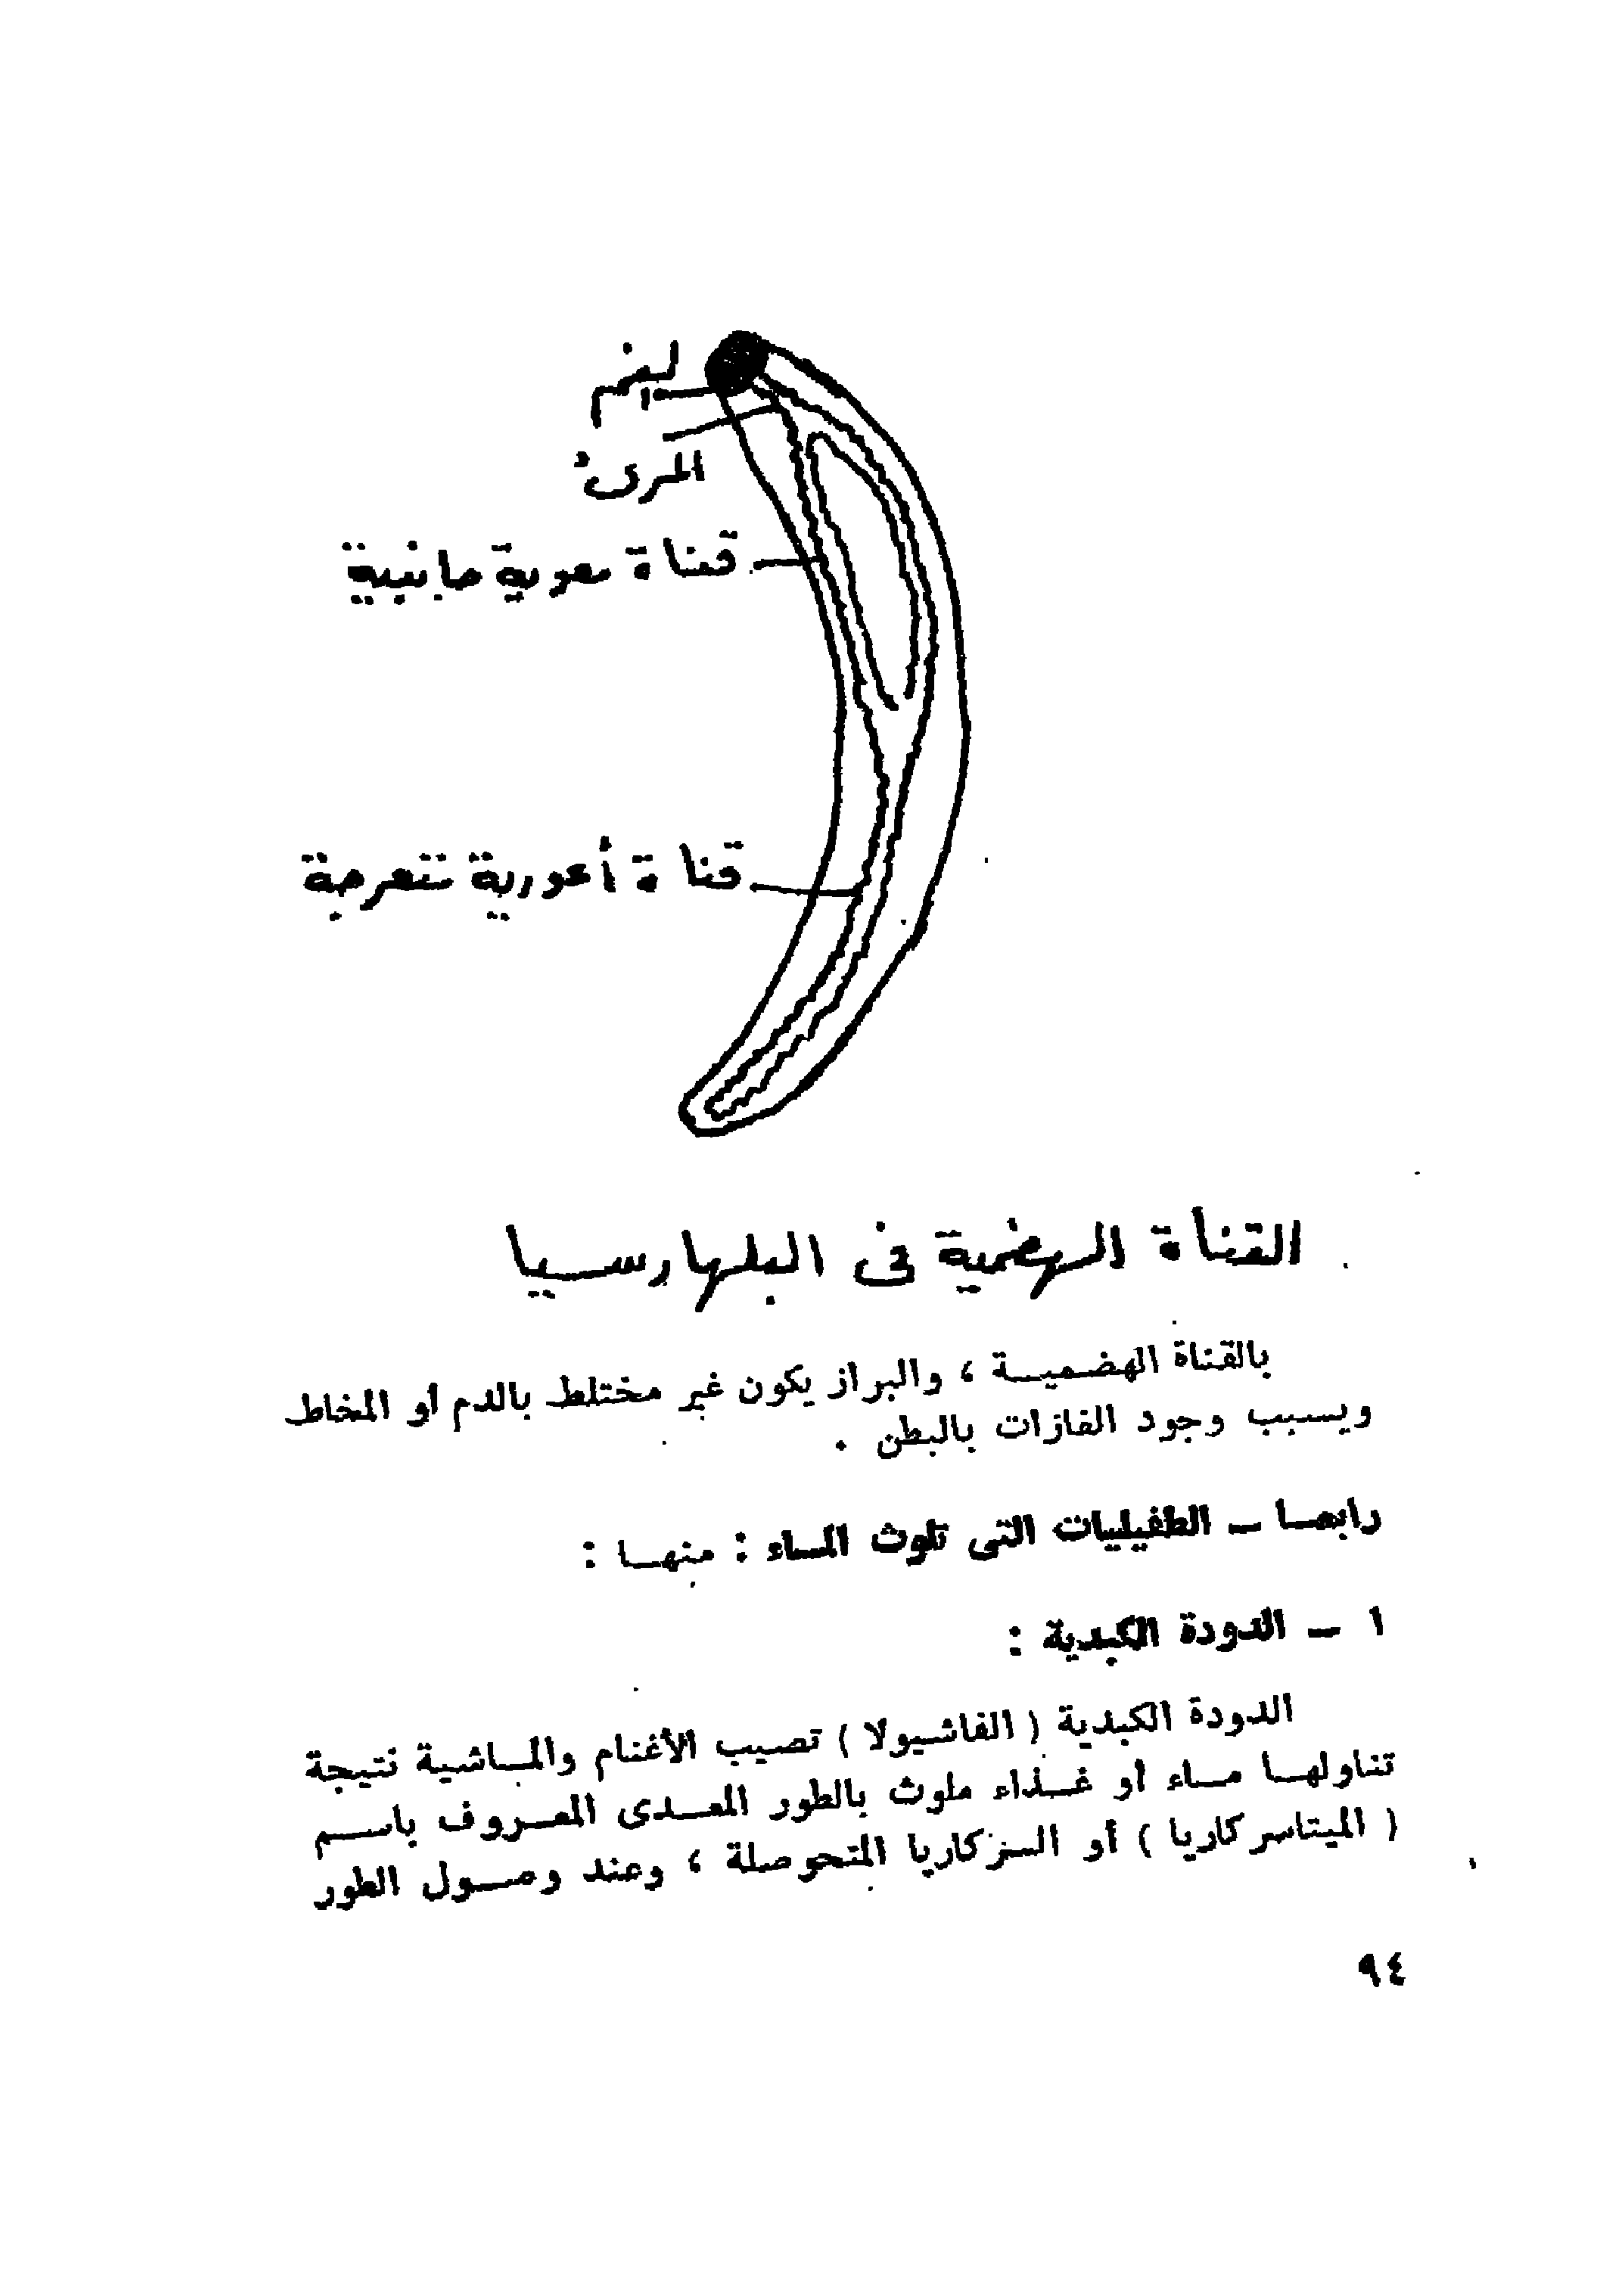 الفم
المرئ
قناة معوية جانبية
قناة أعورية متعرجة
القناة الهضمية فى البلهارسيا
بالقناة الهضميـة ، والبراز يكون غير مختلط بالدم أو المخاط
ويسبب وجود الغازات بالبطن .
رابعـا ــ الطفيليات التى تلوث المـاء : منهـا :
١ ــ الدودة الكبدية :
الدودة الكبدية ( الفاشيولا ) تصيب الأغنام والمـاشية نتيجة
تناولهـا مـاء أو غـذاء ملوث بالطور المعـدى المعـروف باسـم
( الميتاسركاريا ) أو السركاريا المتحوصلة ، وعند وصـول الطور
٩٤